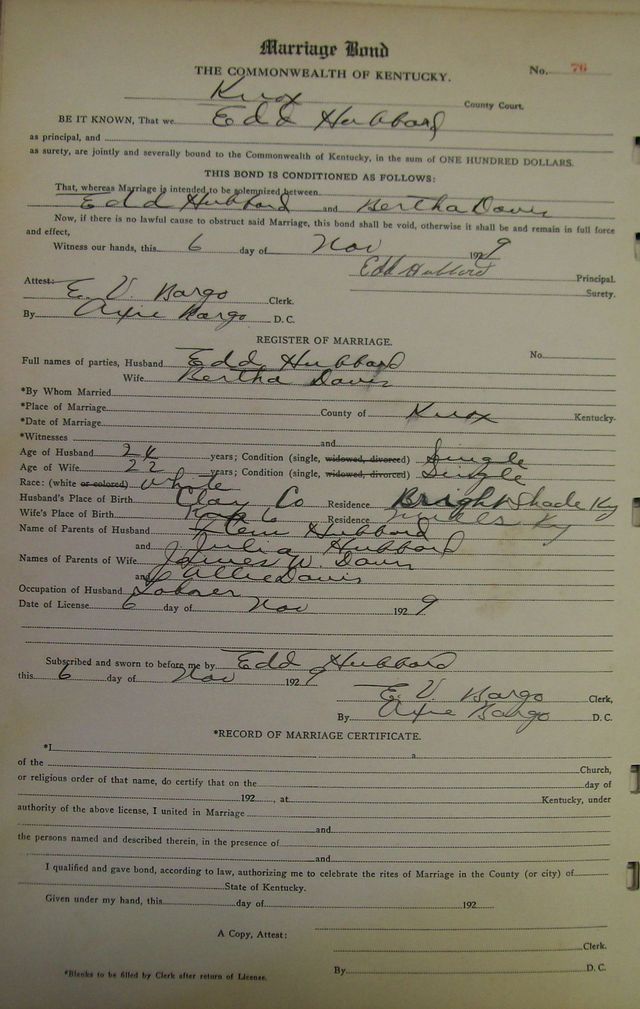 Marriage Bond
No. 76
THE COMMONWEALTH OF KENTUCKY.
Knox County Court.
BE IT KNOWN, That we Edd Hubbard
as principal, and
as surety, are jointly and severally bound to the Commonwealth of Kentucky, in the sum of ONE HUNDRED DOLLARS.
THIS BOND IS CONDITIONED AS FOLLOWS:
That, whereas Marriage is intended to be solemnized between
Edd Hubbard and Bertha Davis
Now, if there is no lawful cause to obstruct said Marriage, this bond shall be void, otherwise it shall be and remain in full force
and effect,
Witness our hands, this 6 day of Nov 1929
Edd Hubbard Principal.
Attest: Surety.
E. V. Bargo Clerk.
By Bargo D. C.
REGISTER OF MARRIAGE.
Full names of parties, Husband Edd Hubbard No.
Wife Bertha Davis
*By Whom Married
*Place of Marriage County of Knox Kentucky
*Date of Marriage
*Witnesses and
Age of Husband 24 years; Condition (single, widowed, divorced) Single
Age of Wife 22 years; Condition (single, widowed, divorced) Single
Race: (white or colored) White
Husband's Place of Birth Clay Co Residence Bright Shade Ky
Wife's Place of Birth Knox Co Residence Ky
Name of Parents of Husband Hubbard
and Julia Hubbard
Names of Parents of Wife James W. Davis
and Allie Davis
Occupation of Husband Laborer
Date of License 6 day of Nov 1929
Subscribed and sworn to before me by Edd Hubbard
this 6 day of Nov 1929
E. V. Bargo Clerk,
By Bargo D. C.
*RECORD OF MARRIAGE CERTIFICATE.
*I a
of the Church,
or religious order of that name, do certify that on the day of
192 , at Kentucky, under
authority of the above license, I united in Marriage
and
the persons named and described therein, in the presence of
and
I qualified and gave bond, according to law, authorizing me to celebrate the rites of Marriage in the County (or city) of
State of Kentucky.
Given under my hand, this day of 192
A Copy, Attest:
Clerk.
*Blanks to be filled by Clerk after return of License.
By D. C.